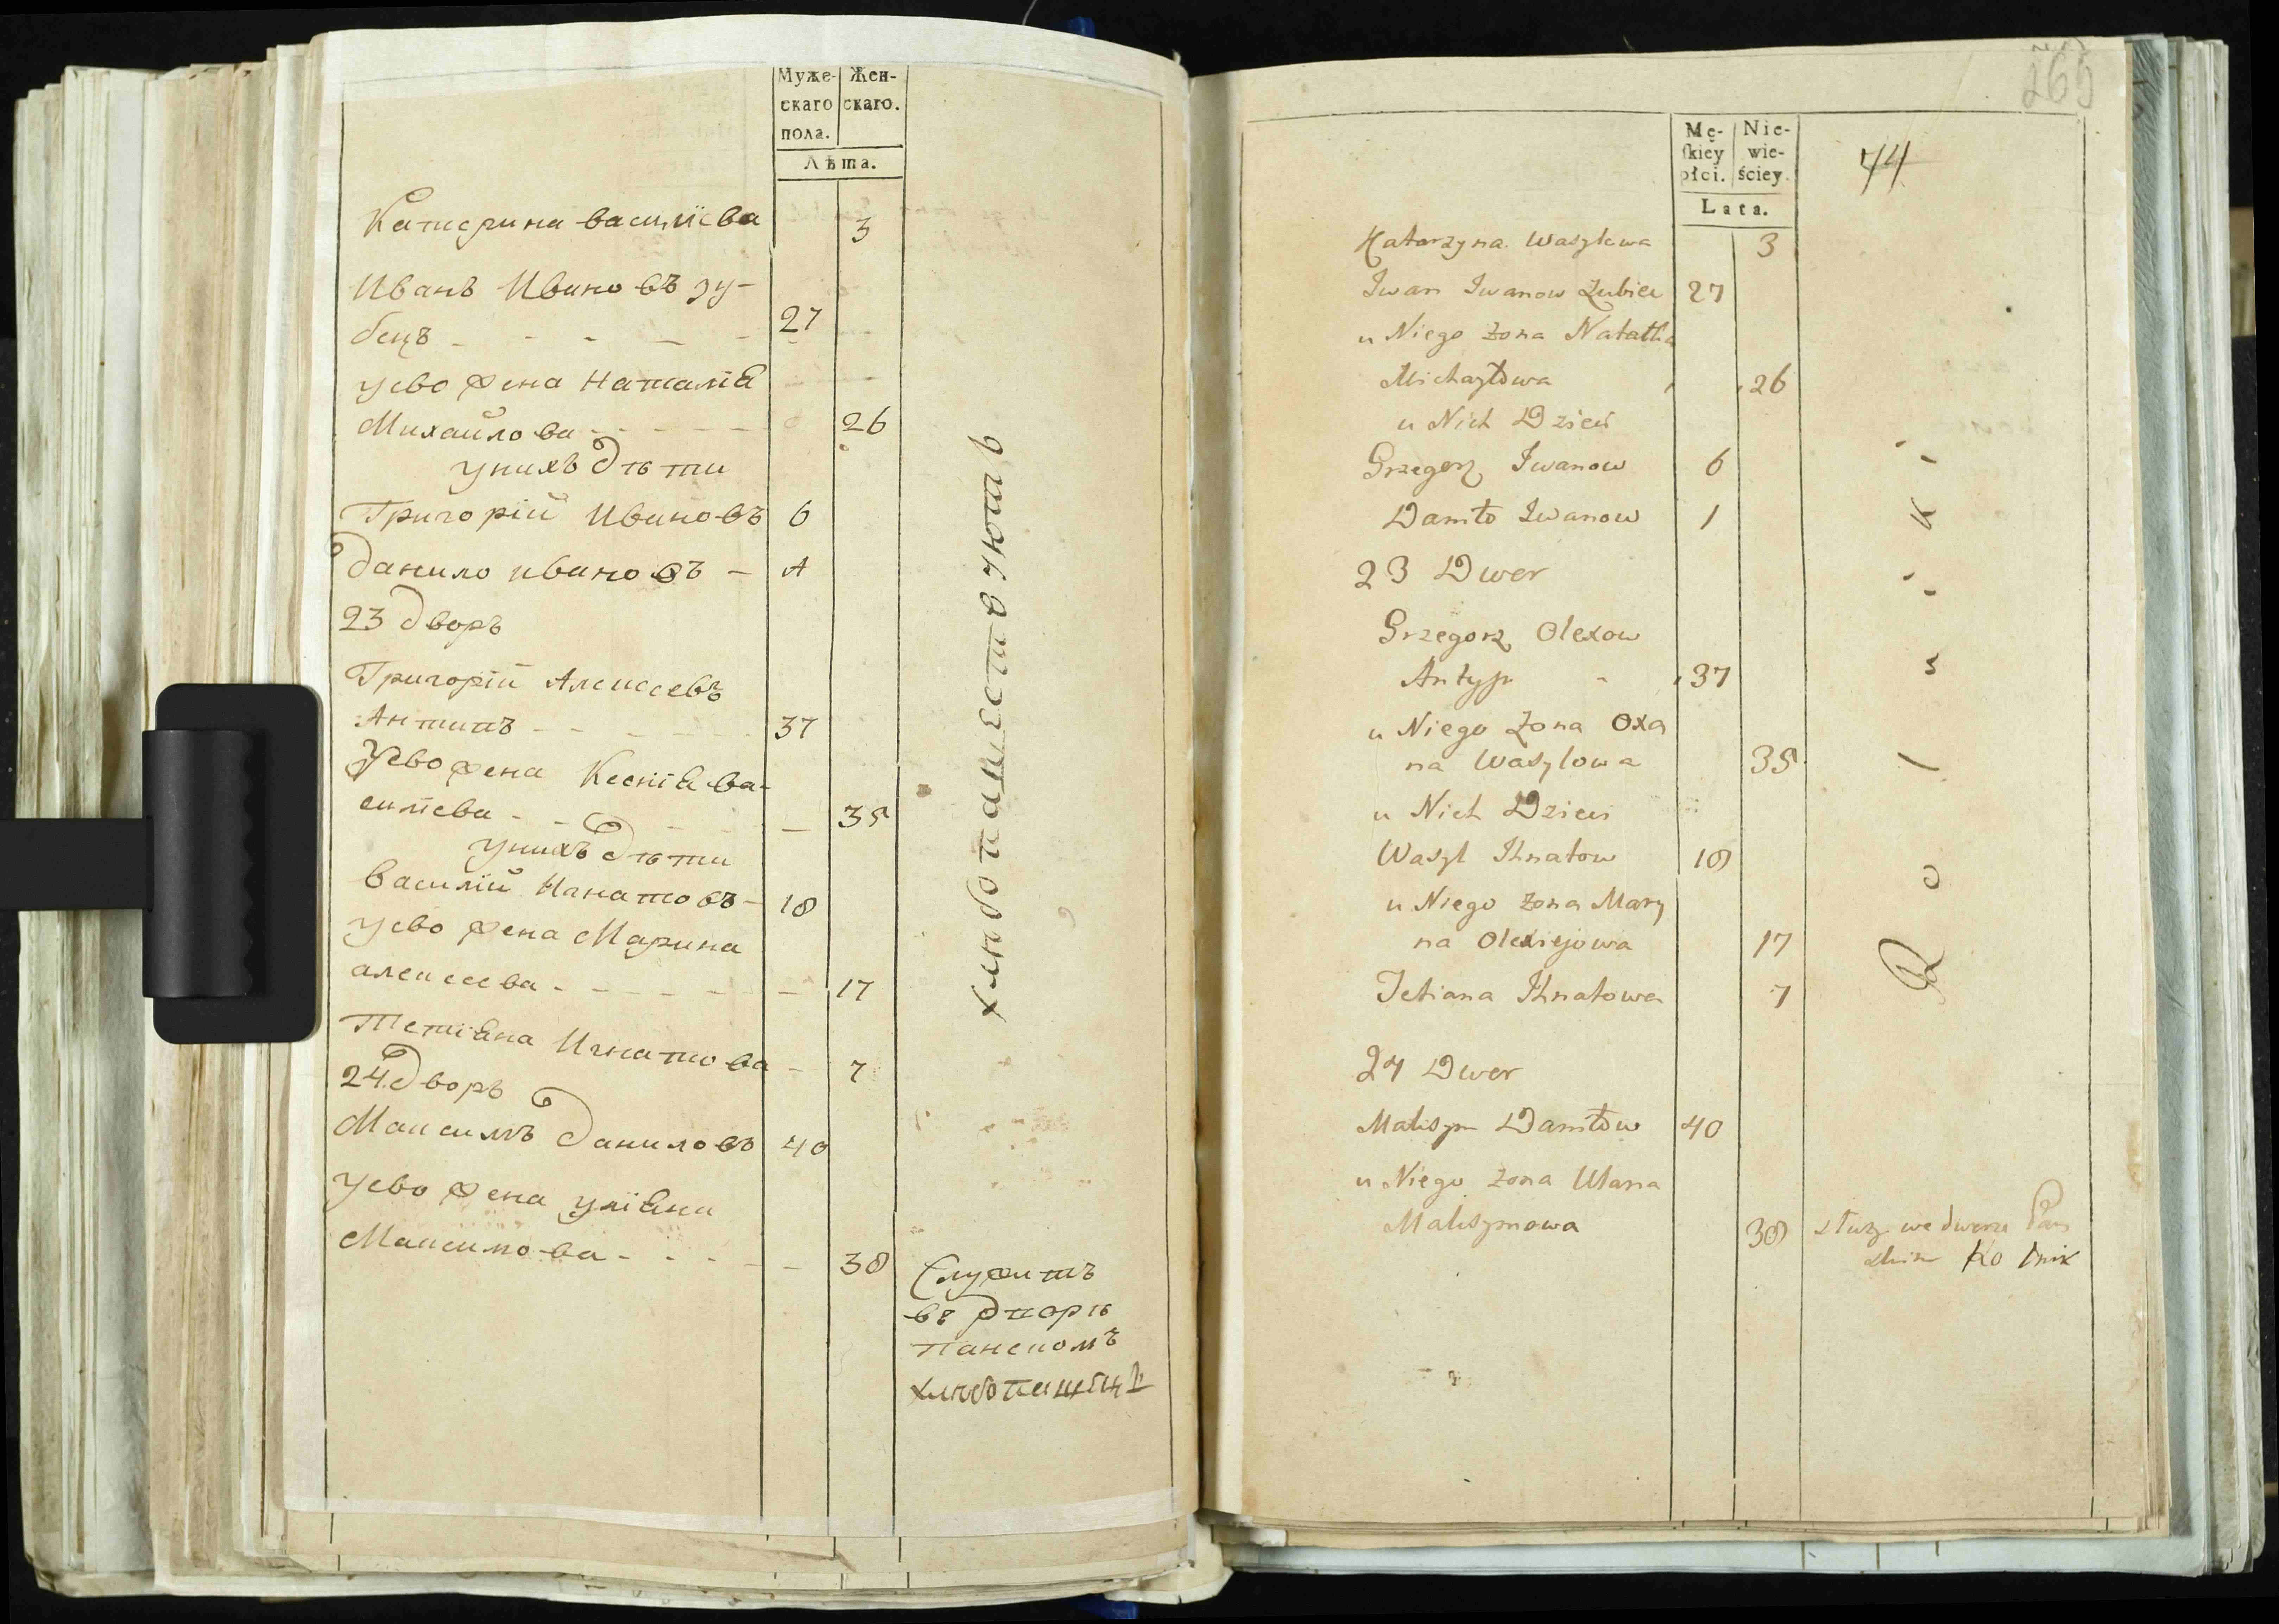 Муже- Жен-
скаго скаго.
пола.
Лѣта.
Катерина василіева 3
Иванъ Ивановъ зу-
бецъ - - - - - 27
уево жена Наталія
Михайлова - - - - - 26
унихъ дѣти
Григорій Ивановъ 6
данило ивановъ - 1
23 дворъ
Григорій Алексеевъ
Антипъ - - - - - 37
Уево жена Ксенія ва-
силіева - - - - - 35
унихъ дѣти
василій Игнатовъ - 18
уево жена Марина
алексеева - - - - - 17
Тетіяна Игнатова - 7
24 дворъ
Максимъ даниловъ 40
уево жена уліяна
Максимова - - - - - 38
Служитъ
въ дворѣ
панскомъ
хлѣбопашествуютъ
265
Mę- Nie-
ſkiey wie-
płci. ściey.
Lata.
44
Katarzyna Wasylewa 3
Iwan Iwanow Zubiec 27
u Niego żona Natalka
Michayłowa 26
u Nich Dzieci
Grzegorz Iwanow 6
Daniło Iwanow 1
23 Dwor
Grzegorz Olexow
Antyp - 37
u Niego żona Oxa
na Wasylowa 35
u Nich Dzieci
Wasyl Ihnatow 18
u Niego żona Mary
na Olexiejowa 17
Tetiana Ihnatowa 7
24 Dwor
Maksym Daniłow 40
u Niego żona Ulana
Maksymowa 38
służy we dworze Pań
skim Rolnik
R o l n i k i